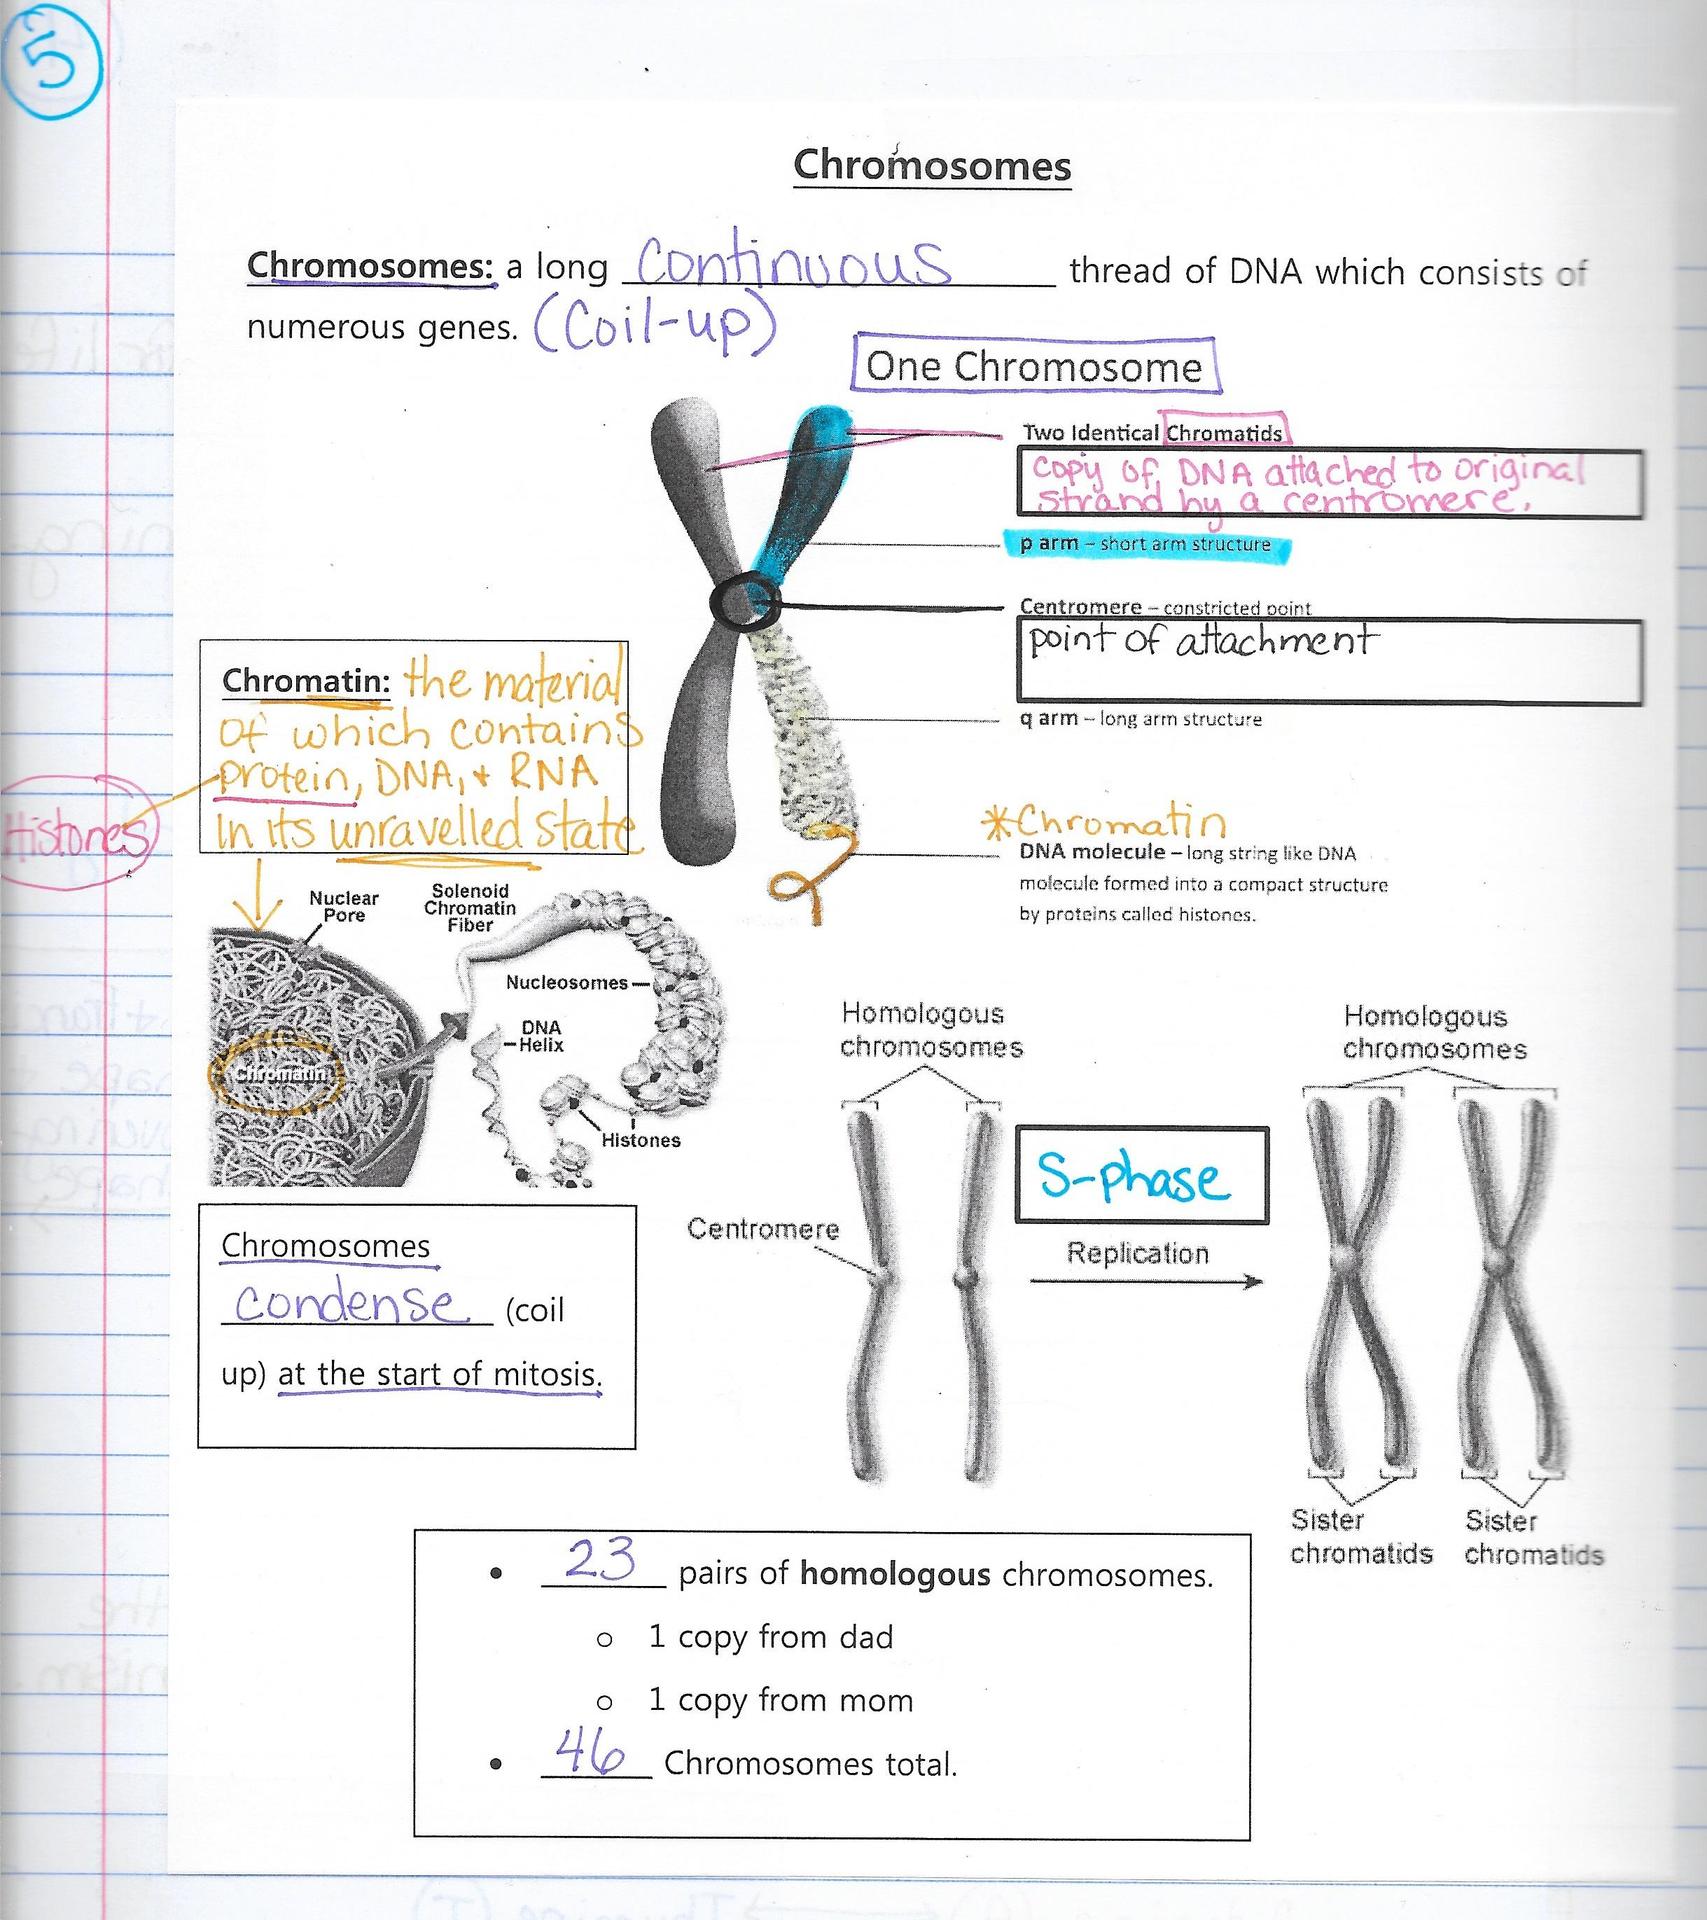 5
Chromosomes
Chromosomes: a long continuous thread of DNA which consists of
numerous genes. (Coil-up)
One Chromosome
Two Identical Chromatids
copy of DNA attached to original
strand by a centromere.
p arm – short arm structure
Centromere – constricted point
point of attachment
q arm – long arm structure
*Chromatin
DNA molecule – long string like DNA
molecule formed into a compact structure
by proteins called histones.
Chromatin: the material
of which contains
protein, DNA, + RNA
in its unravelled state
Histones
Nuclear
Pore
Solenoid
Chromatin
Fiber
Nucleosomes
DNA
Helix
Chromatin
Histones
Homologous
chromosomes
Homologous
chromosomes
S-phase
Centromere
Replication
Sister
chromatids
Sister
chromatids
Chromosomes
condense (coil
up) at the start of mitosis.
• 23 pairs of homologous chromosomes.
o 1 copy from dad
o 1 copy from mom
• 46 Chromosomes total.